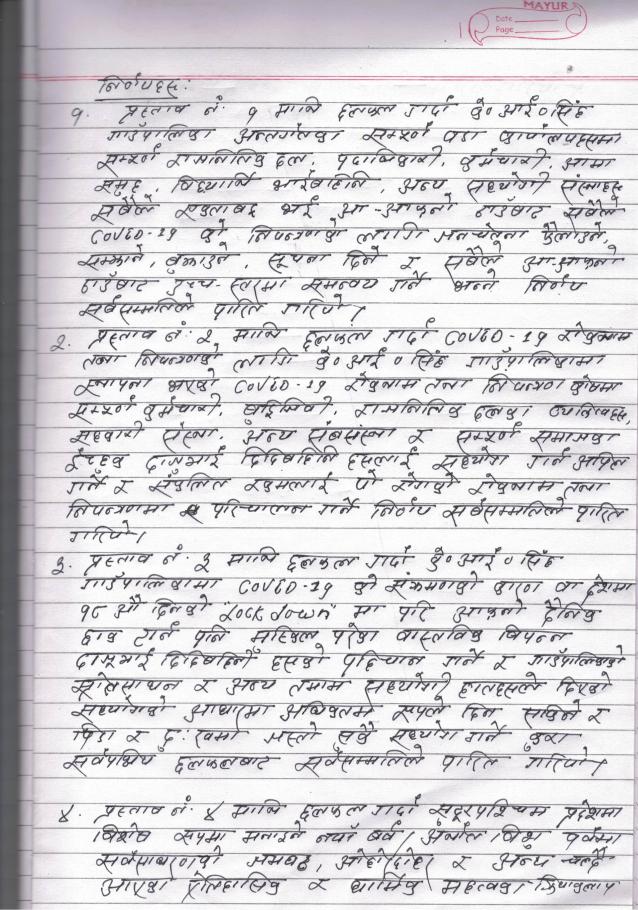 MAYUR
Date
Page
निर्णयहरू:
१. प्रस्ताव नं. १ माथि छलफल गर्दा के० आई० सिंह
गाउँपालिका अन्तर्गतका सम्पूर्ण वडा कार्यालयहरुमा
सम्पूर्ण राजनितिक दल, पदाधिकारी, कर्मचारी, आमा
समुह, विद्यार्थि भाईबहिनि, अन्य सहयोगी संस्थाहरु
सबैले एकताबद्ध भई आ-आफ्नो ठाउँबाट सबैले
COVED-19 को नियन्त्रणको लागि जनचेतना फैलाउने,
सम्झाने, बुझाउने, सूचना दिने र सबैले आ-आफ्नो
ठाउँबाट उच्च-स्तरमा समन्वय गर्ने भन्ने निर्णय
सर्वसम्मतिले पारित गरियो।
२. प्रस्ताव नं. २ माथि छलफल गर्दा COVED-19 रोकथाम
तथा नियन्त्रणको लागि के० आई० सिंह गाउँपालिकामा
स्थापना भएको COVED-19 रोकथाम तथा नियन्त्रण कोषमा
सम्पूर्ण कर्मचारी, बुद्धिजिवी, राजनितिक दलका व्यक्तित्वहरु,
सहकारी संस्था, अन्य संघसंस्था र सम्पूर्ण समाजका
ईच्छुक दाजुभाई दिदिबहिनि हरुलाई सहयोग गर्न अपिल
गर्ने र संकलित रकमलाई यो रोगको रोकथाम तथा
नियन्त्रणमा परिचालन गर्ने निर्णय सर्वसम्मतिले पारित
गरियो।
३. प्रस्ताव नं. ३ माथि छलफल गर्दा के० आई० सिंह
गाउँपालिकामा COVED-19 को संक्रमणको कारण वा देशमा
१८ औं दिनको "Lock down" मा परि आफ्नो दैनिक
छाक टार्न पनि मुश्किल परेका वास्तविक विपन्न
दाजुभाई दिदिबहिनी हरुको पहिचान गर्ने र गाउँपालिकाको
स्रोतसाधन र अन्य तमाम सहयोगी हातहरुले दिएको
सहयोगको आधारमा अधिकतम रुपले दिन सकिने र
पिडा र दुःखमा जस्तो सुकै सहयोग गर्ने कुरा
सर्वपक्षिय छलफलबाट सर्वसम्मतिले पारित गरियो।
४. प्रस्ताव नं. ४ माथि छलफल गर्दा सुदूरपश्चिम प्रदेशमा
विशेष रुपमा मनाइने नयाँ बर्ष / अर्थात बिशु पर्वमा
सर्वसाधारणको जमघट, ओहोरदोहोर र अन्य चल्दै
आएका ऐतिहासिक र धार्मिक महत्वका क्रियाकलाप